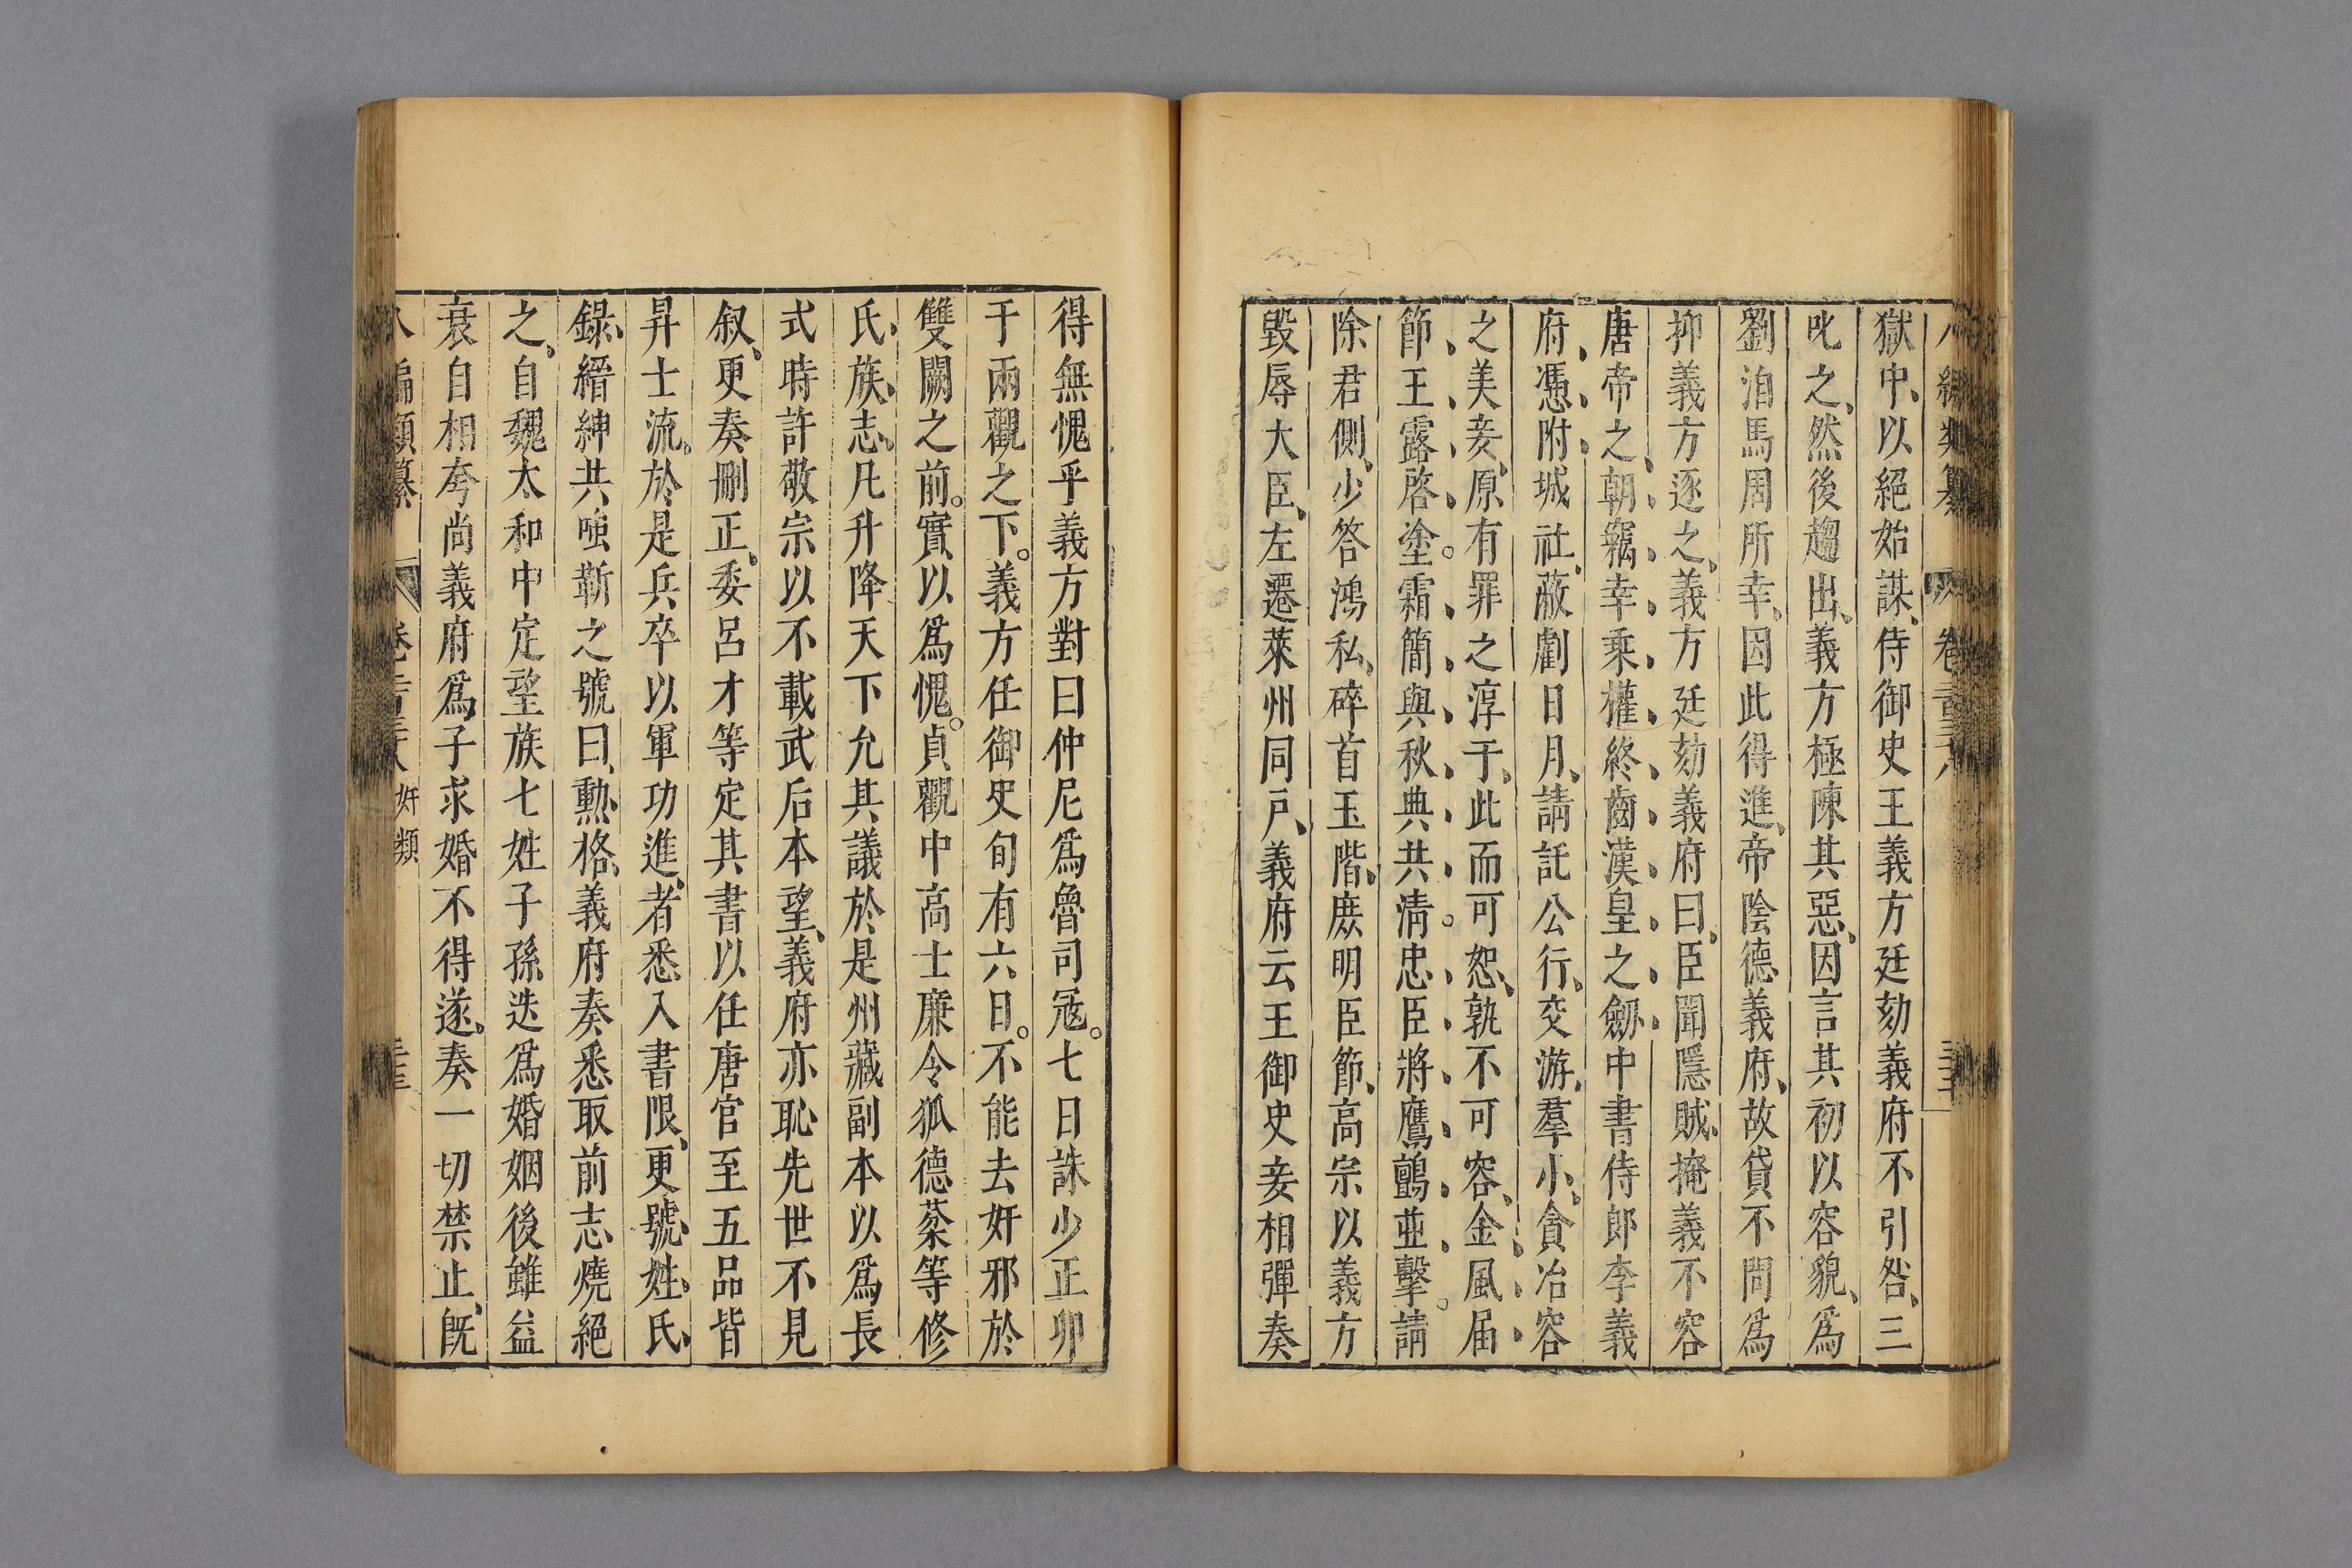 獄中以絕始謀侍御史王義方廷劾義府不引咎三
叱之然後趨出義方極陳其惡因言其初以容貌爲
劉洎馬周所幸因此得進帝陰德義府故貸不問爲
抑義方逐之義方廷劾義府曰臣聞隱賊掩義不容
唐帝之朝竊幸乘權終齒漢皇之劒中書侍郎李義
府憑附城社蔽劇日月請託公行交游羣小貪冶容
之美妾原有罪之淳于此而可恕孰不可容金風届
節王露啓塗霜簡與秋典共淸忠臣將鷹鸇並擊請
除君側少答鴻私碎首玉階庶明臣節高宗以義方
毀辱大臣左遷萊州同戶義府云王御史妄相彈奏
得無愧乎義方對曰仲尼爲魯司冦七日誅少正卯
于兩觀之下義方任御史旬有六日不能去奸邪於
雙闕之前實以爲愧貞觀中高士廉令狐德棻等修
氏族志凡升降天下允其議於是州藏副本以爲長
式時許敬宗以不載武后本望義府亦恥先世不見
叙更奏刪正委呂才等定其書以任唐官至五品皆
昇士流於是兵卒以軍功進者悉入書限更號姓氏
錄縉紳共嗤靳之號曰勲格義府奏悉取前志燒絕
之自魏太和中定望族七姓子孫迭爲婚姻後雖益
衰自相夸尚義府爲子求婚不得遂奏一切禁止旣
八編類纂 卷 奸類